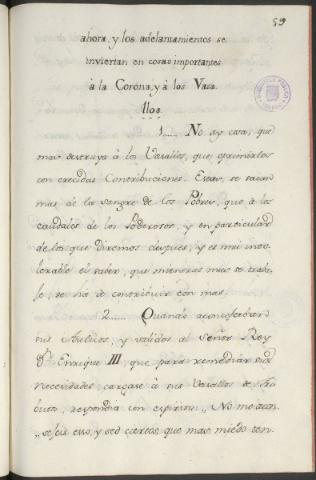 59
ahora, y los adelantamientos se
inviertan en cosas importantes
à la Corona, y à los Vasa-
llos.
1..... No ay cosa, que
mas destruya à los Vasallos, que oprimirlos
con crecidas Contribuciones. Estas, se sacan
mas de la sangre de los Pobres, que de los
caudales de los Poderosos, y en particular
de los que diremos despues, y es mui
el saber, que mientras mas se traba-
je, se ha de contribuir con mas.
2...... Quando aconsejaban
sus Aulicos, y validos al Señor Rey
Dn. Enrique III, que para remediar sus
necesidades, cargase à sus Vasallos de tri-
butos, respondia con espiritu: „ No me acon-
„ sejeis esso, y sed ciertos, que mas miedo ten-